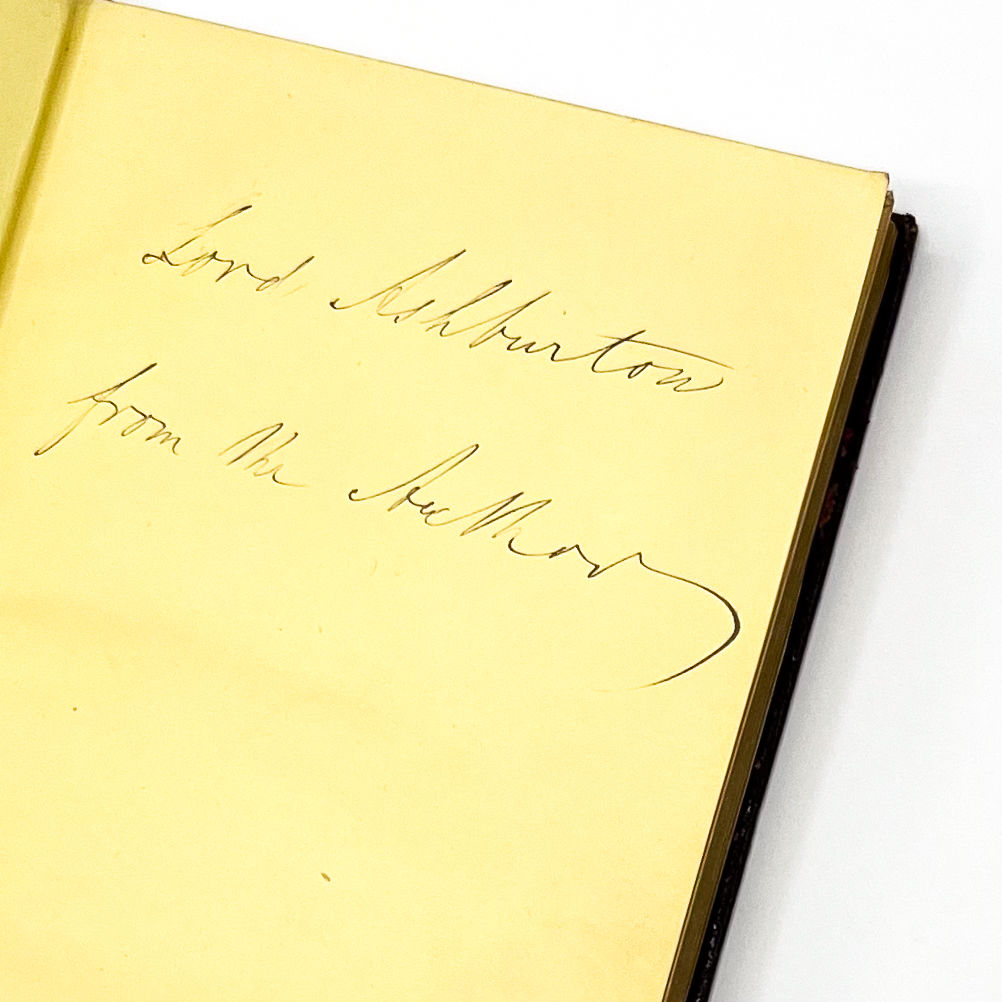 Lord Ashburton
from the Author